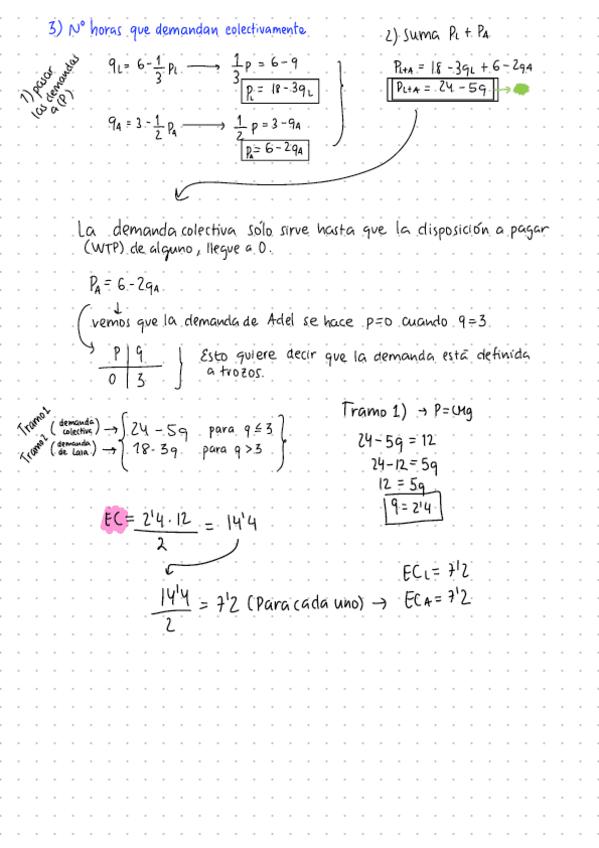 3) Nº horas que demandan colectivamente
1) pasar las demandas a (P)
qL = 6 - 1/3 PL → 1/3 P = 6 - q
PL = 18 - 3qL
qA = 3 - 1/2 PA → 1/2 P = 3 - qA
PA = 6 - 2qA
2) Suma PL + PA
PL+A = 18 - 3qL + 6 - 2qA
PL+A = 24 - 5q →
La demanda colectiva sólo sirve hasta que la disposición a pagar
(WTP) de alguno, llegue a 0.
PA = 6 - 2qA
vemos que la demanda de Adel se hace p=0 cuando q=3
P | q
0 | 3
Esto quiere decir que la demanda está definida
a trozos.
Tramo 1 (demanda colectiva) → 24 - 5q para q ≤ 3
Tramo 2 (demanda de Lara) → 18 - 3q para q > 3
Tramo 1) → P = CMg
24 - 5q = 12
24 - 12 = 5q
12 = 5q
q = 2'4
EC = 2'4 · 12 / 2 = 14'4
14'4 / 2 = 7'2 (Para cada uno) →
ECL = 7'2
ECA = 7'2